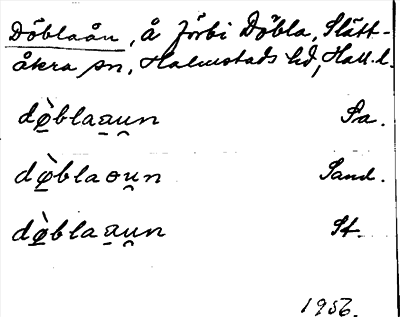 Döblaån, å förbi Döbla, Slätt-
åkra sn, Halmstads hd, Hall. l.
dø̠̀blaa̠u̯n Sa.
dø̠̀blaou̯n Sand.
dø̠̀blaa̠u̯n St.
1956.